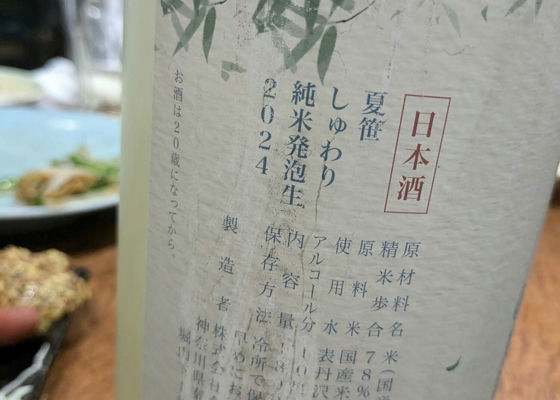 日本酒
夏笹
しゅわり
純米発泡生
2024
原材料名 米(国産
精米歩合 78%
原料米 国産米
使用水 表丹沢
アルコール分 10
内容量
保存方法 冷所で保
早めにお
製造者 株式会社
神奈川県
堀内
お酒は20歳になってから。